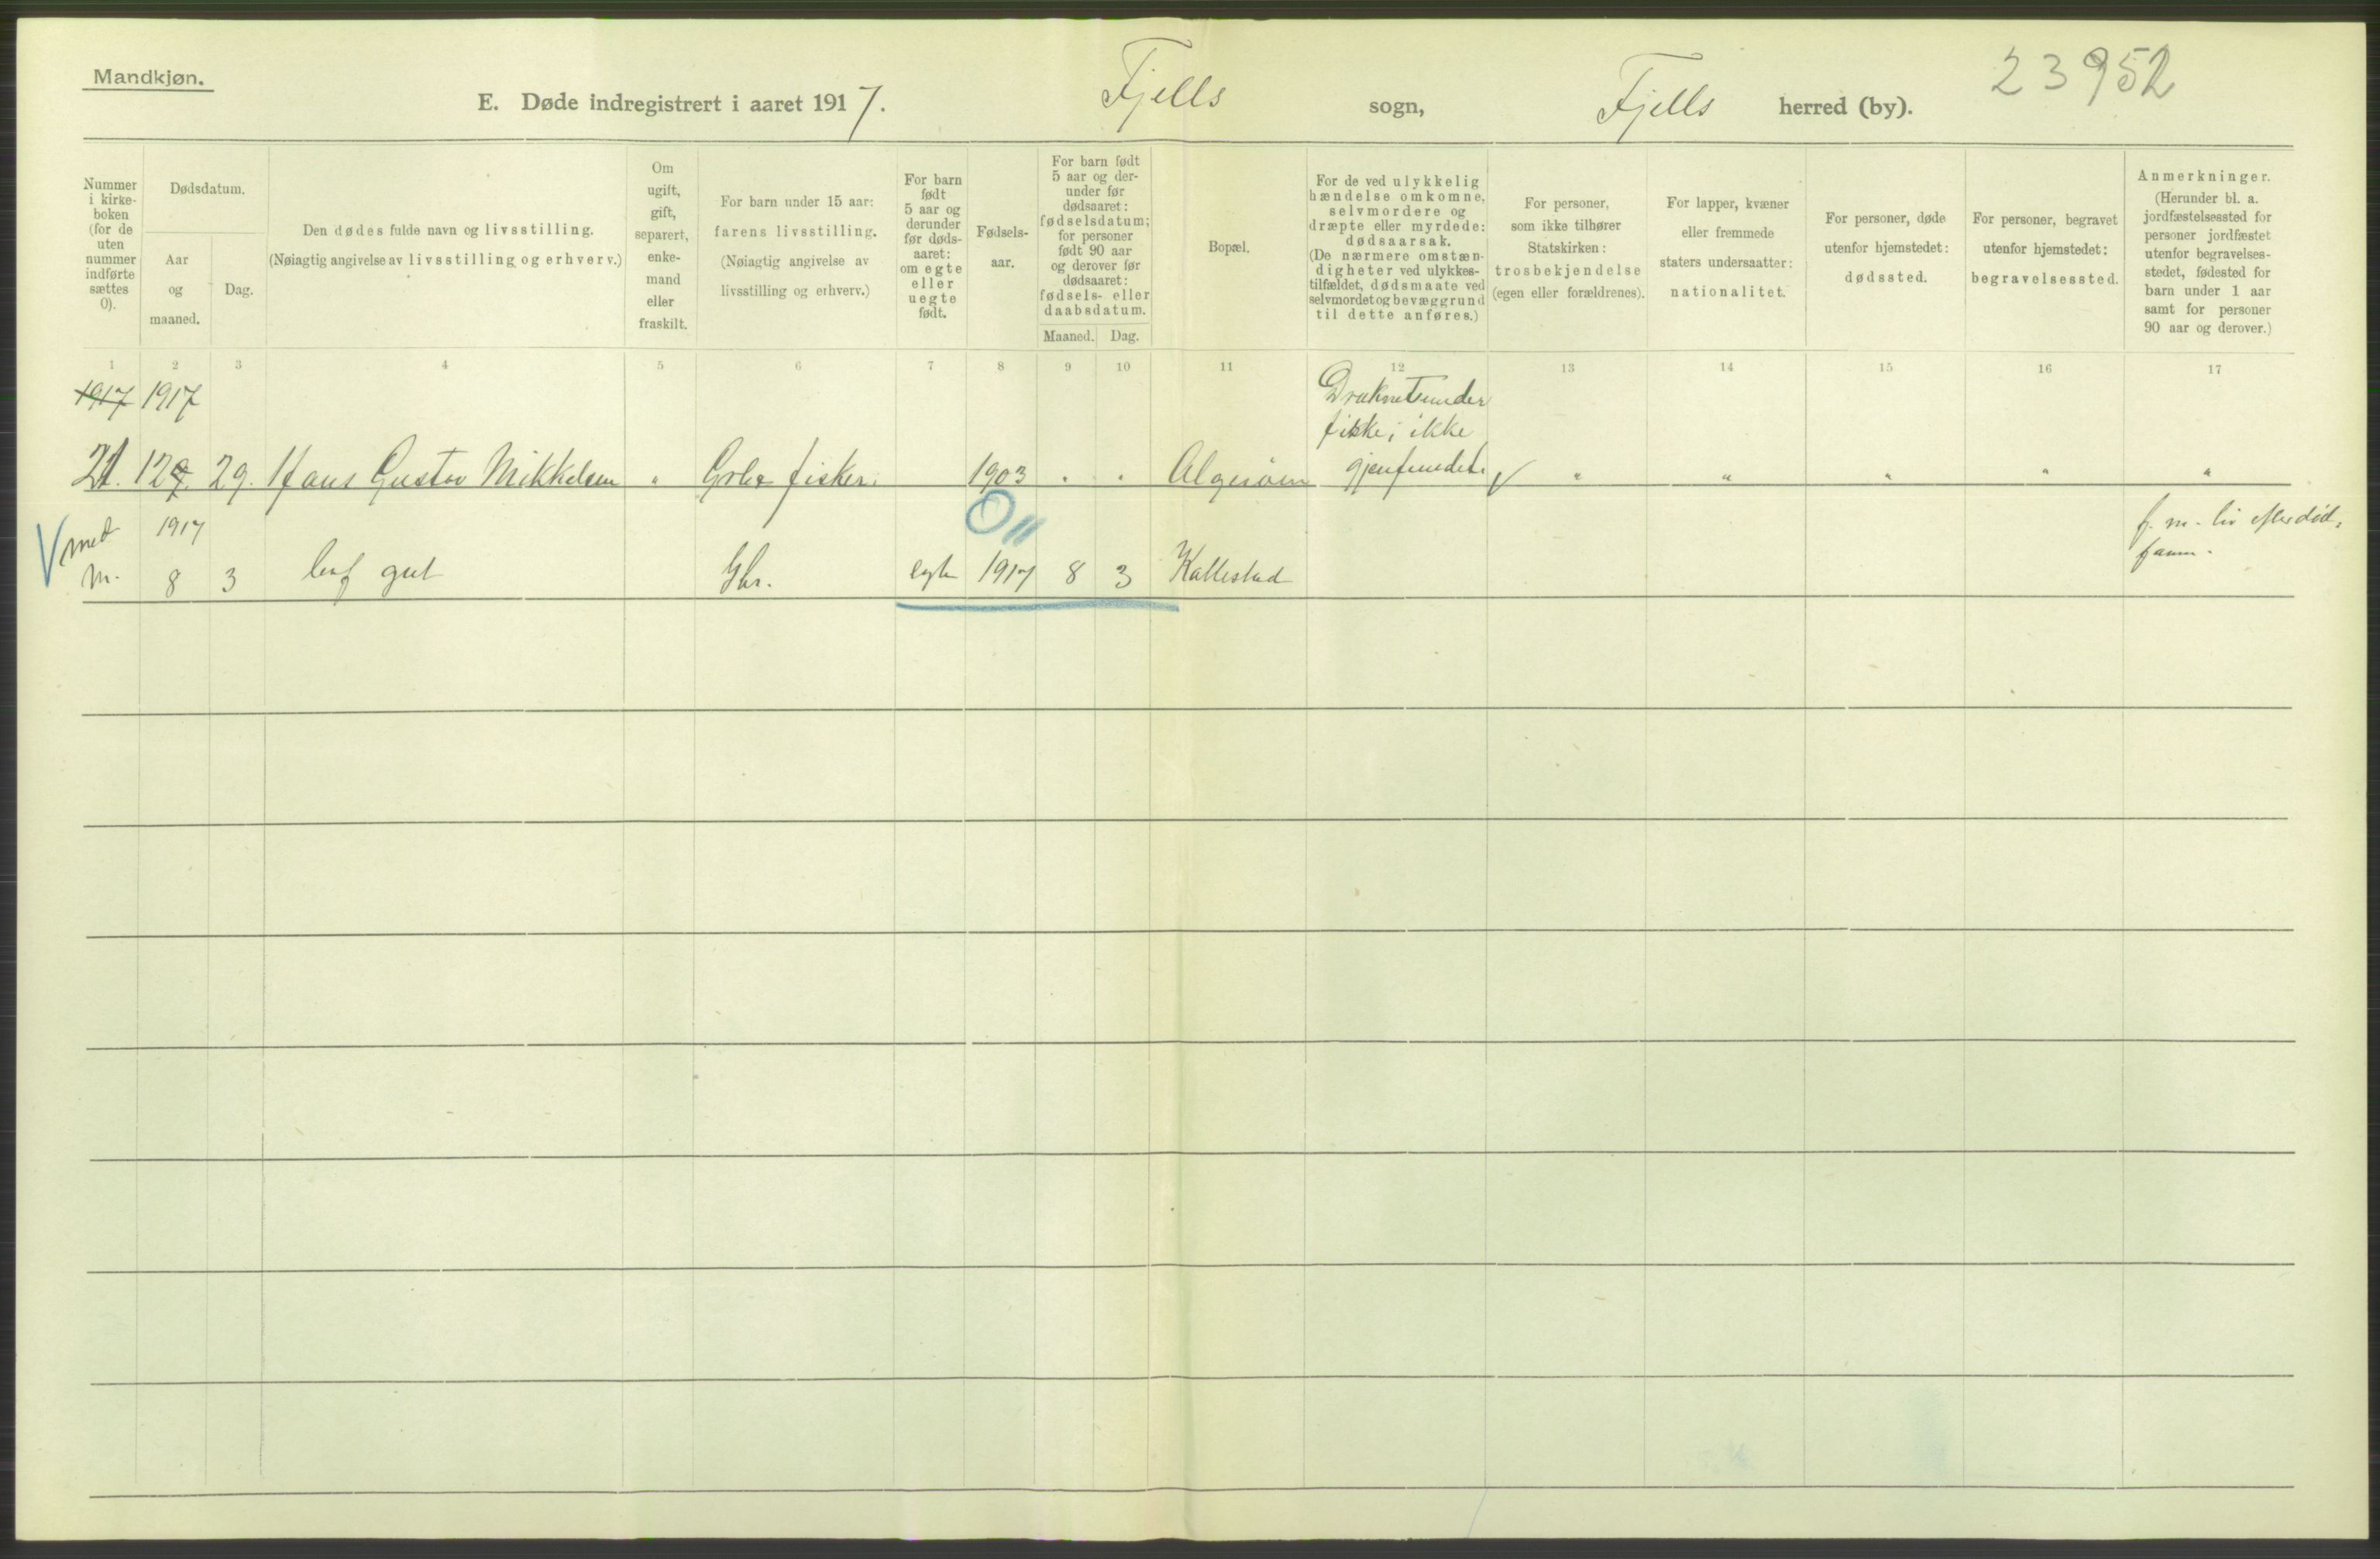 Mandkjøn.
E. Døde indregistrert i aaret 1917. Fjells sogn, Fjells herred (by). 23952
Nummer i kirkeboken (for de uten nummer indførte sættes 0).
Dødsdatum.
Aar og maaned.
Dag.
Den dødes fulde navn og livsstilling.
(Nøiagtig angivelse av livsstilling og erhverv.)
Om ugift, gift, separert, enkemand eller fraskilt.
For barn under 15 aar: farens livsstilling.
(Nøiagtig angivelse av livsstilling og erhverv.)
For barn født 5 aar og derunder før dødsaaret: om egte eller uegte født.
Fødselsaar.
For barn født 5 aar og derunder før dødsaaret: fødselsdatum; for personer født 90 aar og derover før dødsaaret: fødsels- eller daabsdatum.
Maaned. Dag.
Bopæl.
For de ved ulykkelig hændelse omkomne, selvmordere og dræpte eller myrdede: dødsaarsak.
(De nærmere omstændigheter ved ulykkestilfældet, dødsmaate ved selvmordet og bevæggrund til dette anføres.)
For personer, som ikke tilhører Statskirken: trosbekjendelse (egen eller forældrenes).
For lapper, kvæner eller fremmede staters undersaatter: nationalitet.
For personer, døde utenfor hjemstedet: dødssted.
For personer, begravet utenfor hjemstedet: begravelsessted.
Anmerkninger.
(Herunder bl. a. jordfæstelsessted for personer jordfæstet utenfor begravelsesstedet, fødested for barn under 1 aar samt for personer 90 aar og derover.)
1 2 3 4 5 6 7 8 9 10 11 12 13 14 15 16 17
1917 1917 Druknet under
fiske; ikke
21. 12 29. Hans Gustav Mikkelsen " fisker. 1903 " " Algerøen gjenfundet. " " " " "
med 1917
m. 8 3 gut Gbr. egte 1917 8 3 Kallestad